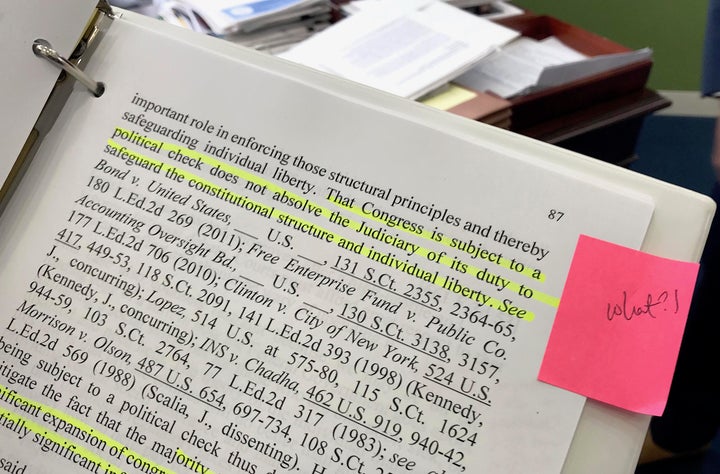 87
important role in enforcing those structural principles and thereby
safeguarding individual liberty. That Congress is subject to a
political check does not absolve the Judiciary of its duty to
safeguard the constitutional structure and individual liberty. See
Bond v. United States, ___ U.S. ___, 131 S.Ct. 2355, 2364-65,
180 L.Ed.2d 269 (2011); Free Enterprise Fund v. Public Co.
Accounting Oversight Bd., ___ U.S. ___, 130 S.Ct. 3138, 3157,
177 L.Ed.2d 706 (2010); Clinton v. City of New York, 524 U.S.
417, 449-53, 118 S.Ct. 2091, 141 L.Ed.2d 393 (1998) (Kennedy,
J., concurring); Lopez, 514 U.S. at 575-80, 115 S.Ct. 1624
(Kennedy, J., concurring); INS v. Chadha, 462 U.S. 919, 940-42,
944-59, 103 S.Ct. 2764, 77 L.Ed.2d 317 (1983); see
Morrison v. Olson, 487 U.S. 654, 697-734, 108 S.Ct.
L.Ed.2d 569 (1988) (Scalia, J., dissenting).
being subject to a political check thus
the fact that the majority
expansion of
significant
said
what?!